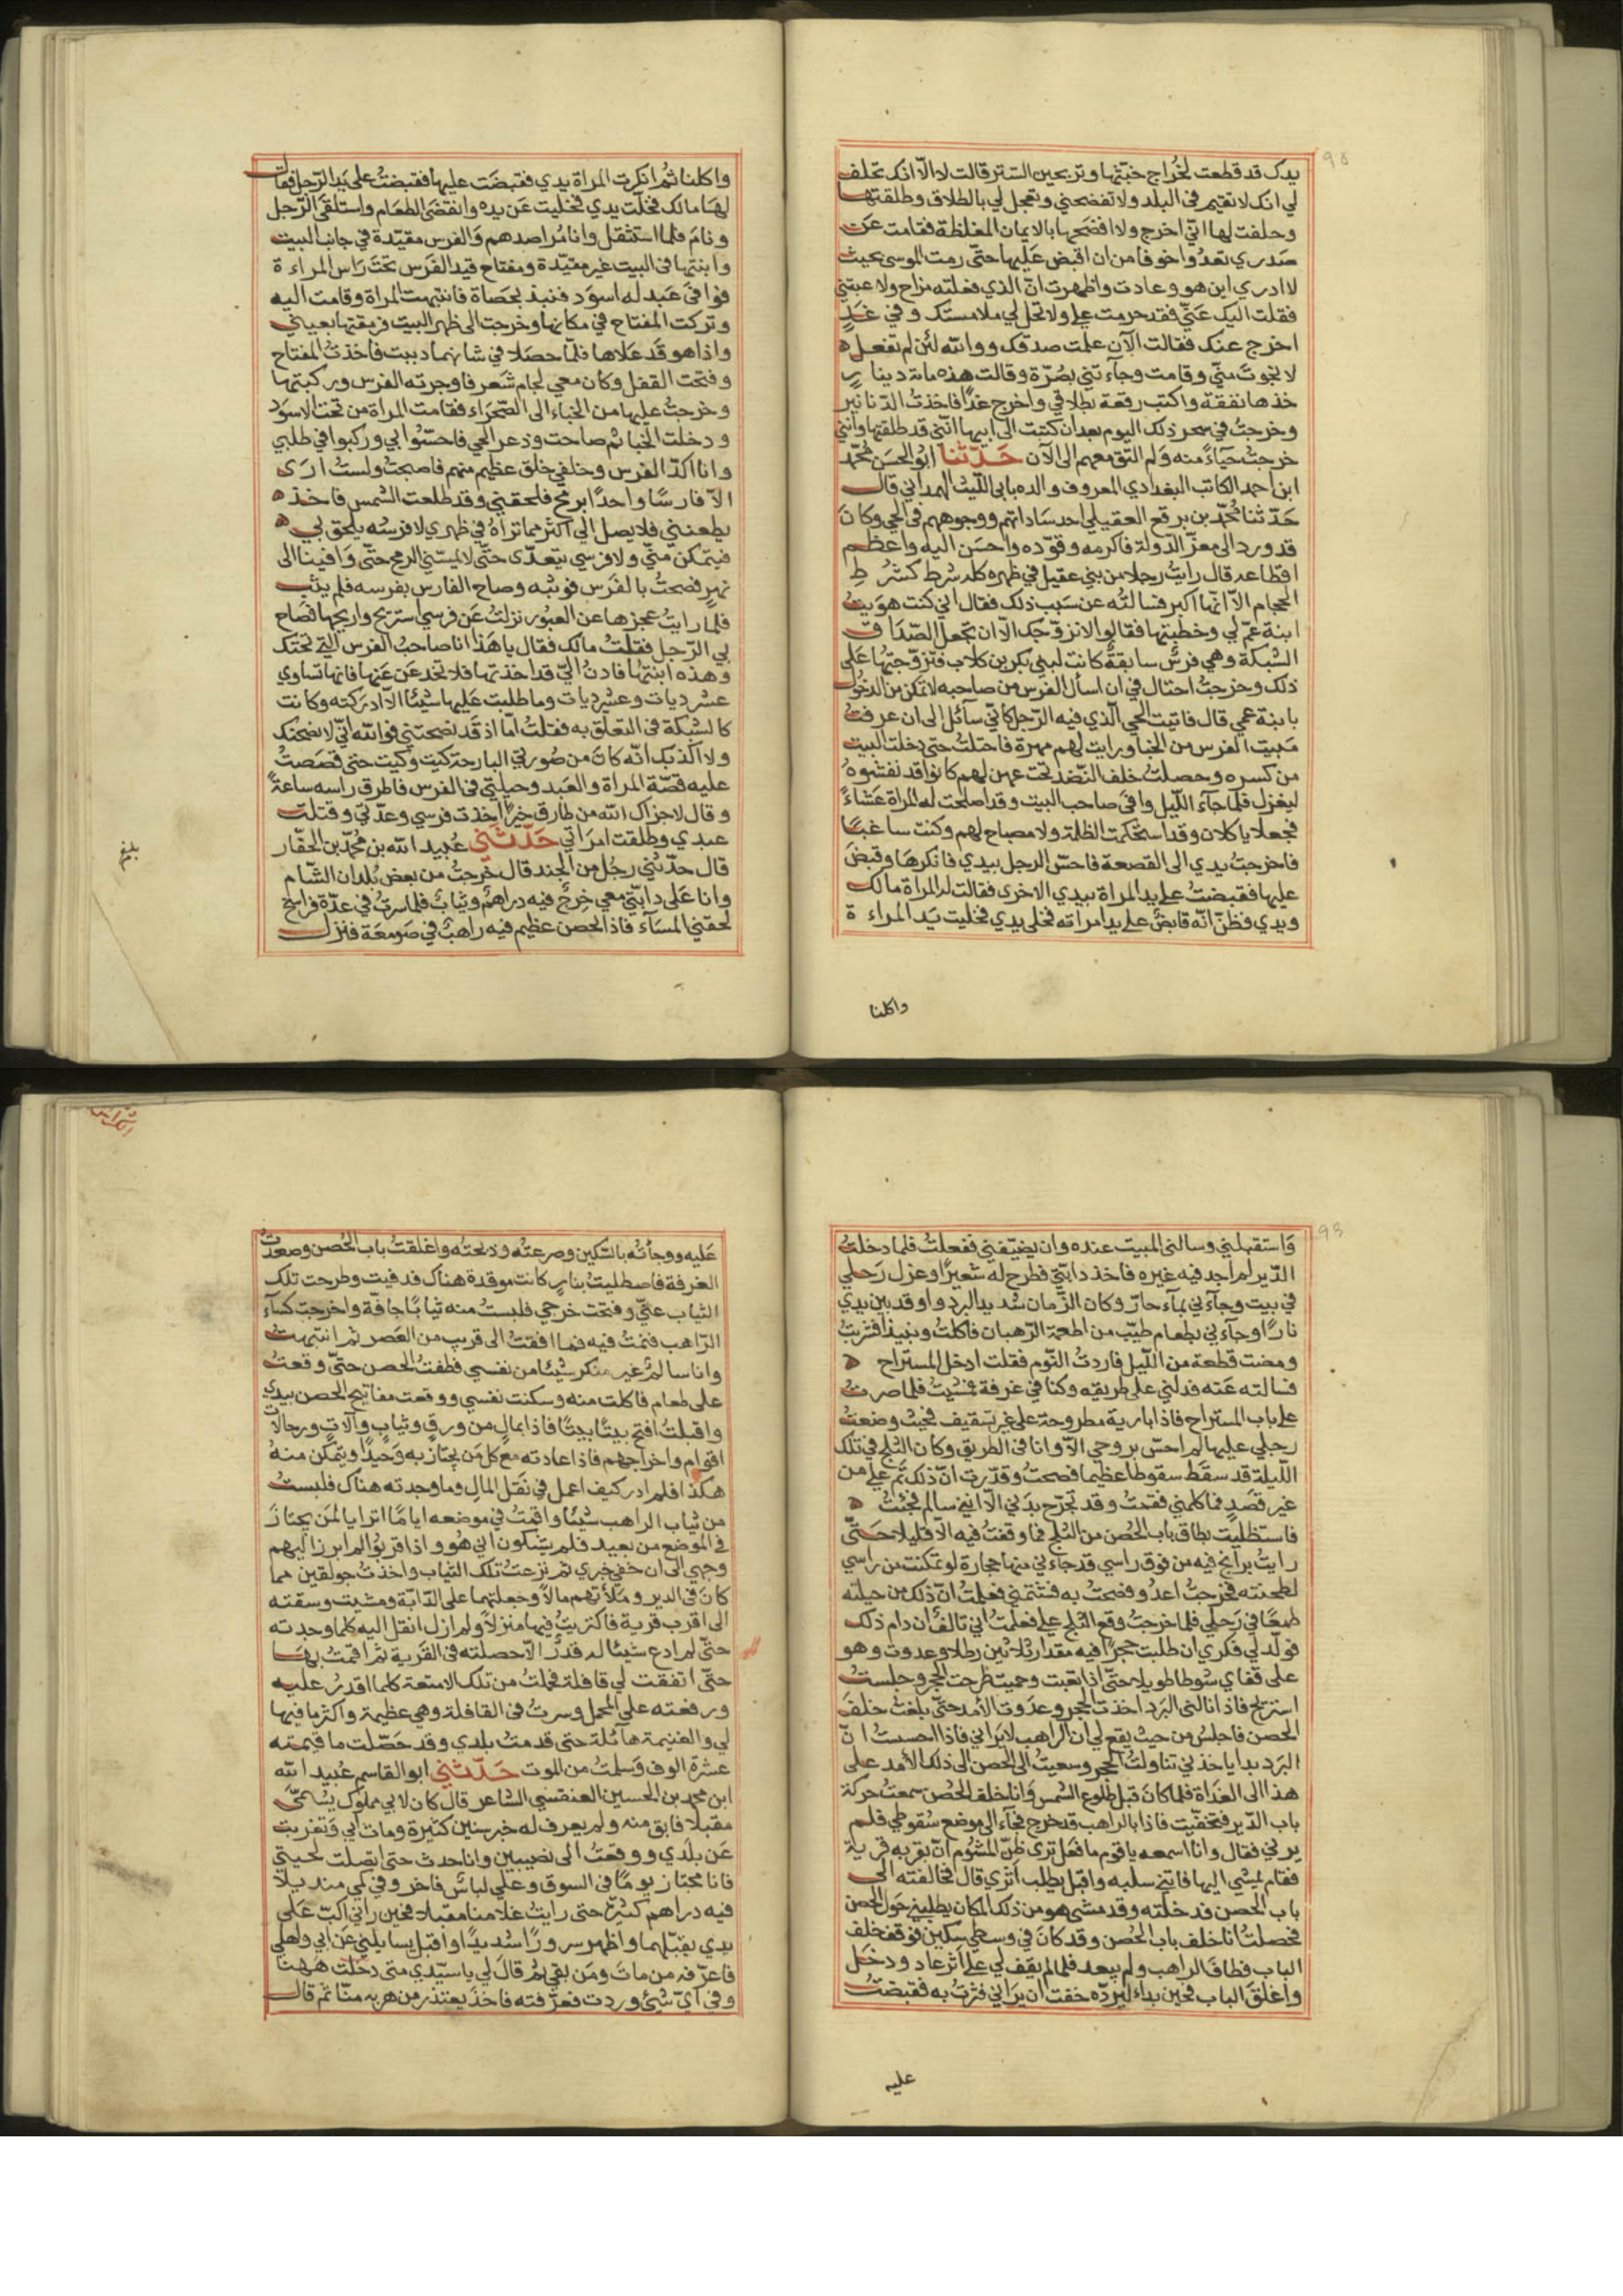 يدك قد قطعت لخراج خبّيتها وتربحين الستر قالت لا الّا انك تحلف
لي انك لا تقيم في البلد ولا تفضحني وتعجل لي بالطلاق وطلقتها
وحلفت لها اني اخرج ولا افضحها بالايمان المغلظة فقامت عن
صدري تعدُوا خوفا من ان اقبض عليها حتّى رمت الموسى بحيث
لا ادري اين هو وعادت واظهرت انّ الذي فعلته مزاح ولاعبتني
فقلت اليك عنّي فقد حرمت علي ولا تحل لي ملامستك وفي غدٍ
اخرج عنك فقالت الآن علمت صدقك ووالله لئن لم تفعل ه
لا نجوتَ منّي وقامت وجآءتني بصُرّة وقالت هذه مائة دينار
خذها نفقة واكتب رقعة بطلاقي واخرج غدًا فاخذت الدنانير
وخرجتُ في سحر ذلك اليوم بعد ان كتبت الى ابيها انّني قد طلقتها وانني
خرجتُ حيآءً منه وَلم التق معهم الى الآن حَدّثنا ابو الحسَن مُحمّد
ابن احمد الكاتب البغدادي المعروف والده بابي الليث الهمداني قال
حَدّثنا مُحمّد بن بدقع العقيلي احد سَاداتهم ووجوههم في الحي وكان
قد ورد الى معزّ الدّولة فاكرمه وقوّده واحسَن اليه واعظم
اقطاعه قال رايتُ رجلا من بني عقيل في ظهره كله شرط كشرط
الحجام الا انها اكبر فسالتُه عن سَبب ذلك فقال اني كنت هوَيتُ
ابنة عمّ لي وخطبتها فقالوا لا نزوّجك الّا ان تجعل الصّدَاق
الشبكة وهي فرسٌ سابقةٌ كانت لبني بكر بن كلاب فتزوّجتها عَلى
ذلك وخرجتُ احتال في ان اسأل الفرس من صاحبه لاتمكن من الدخول
بابنة عمي قال فاتيت الحي الّذي فيه الرّجل كانّي سآئل الى ان عرفتُ
مَبيت الفرس من الخبا ورايت لهم مهرة فاحتلتُ حتى دخلت البيت
من كسره وحصلتُ خلف النّضد تحت عهن لهم كانوا قد نفشوهُ
ليغزل فلمّا جآءَ اللّيل وافى صاحب البيت وقد اصلحت له المراة عَشاءً
فجعلا ياكلان وقد استحكمت الظلمة ولا مصباح لهم وكنت ساغبًا
فاخرجتُ يدي الى القصعة فاحسّ الرجل بيدي فانكرهَا وقبضَ
عليها فقبضتُ على يد المراة بيدي الاخرى فقالت له المراة مالك
ويدي فظنّ انّه قابضٌ على يد امراته فخلى يدي فخليت يَد المراءة
واكلنا
واكلنا ثمّ انكرت المراة يدي فقبضَت عليها فقبضتُ على يَد الرّجل فقالت
لهَا مالك فخلّت يدي فخليت عَن يده وانقضى الطعام واستلقى الرّجل
ونامَ فلمّا استثقل وانا مُراصدهم وَالفرس مقيّدة في جانب البيت
وابنتها في البيت غير مقيّدة ومفتاح قيد الفرَس تحتَ رَاس المراءة
فوافىَ عَبد له اسوَد فنبذ بحصَاة فانتبهت المراة وقامت اليه
وتركت المفتاح في مكانها وخرجت الى ظهر البيت فرمقتها بعياني
واذا هو قَد عَلاها فلمّا حصَلا في شانهما دببت فاخذتُ المفتاح
وفتحت القفل وكان معي لجام شعر فاوجرته الفرس وركبتها
وخرجتُ عليها من الخباء الى الصّحرَاء فقامت المراة من تحت الاسوَد
ودخلت الخبا ثم صاحت وذعر الحي فاحسّوا بي وركبوا في طلبي
وانا اكدّ الفرس وخلفي خلق عظيم منهم فاصبحتُ ولستُ ارَى
الّا فارسًا واحدًا برمح فلحقني وقد طلعت الشمس فاخذ ه
يطعنني فلا يصل الي اكثر مما تراهُ في ظهري لا فرسُه يلحق بي ه
فيتمكن منّي ولا فرسي يتعدّى حتّى لا يمسّني الرمح حتّى وَافينا الى
نهرٍ فصحتُ بالفرَس فوثبه وصاح الفارس بفرسه فلم يثب
فلما رايتُ عجزها عن العبُور نزلتُ عَن فرسي استريح واريحها فصَاح
بي الرّجل فقلتُ مالك فقال يا هَذا انا صاحبُ الفرَس التي تحتك
وهذه ابنتها فاذ نُ انّي قد اخذتها فلا تخدعَن عَنها فانها تساوي
عشر ديات وعشر ديات وما طلبت عَليها شيئًا الّا ادركته وكانت
كالشبكة في التعلّق به فقلتُ امّا اذ قَد نصحتني فوالله انّي لانصحنك
ولا اكذبك انّه كانَ من صُورتي البارحة كيت وكيت حتى قصَصتُ
عليه قصّة المراة والعَبد وحيلتي في الفرس فاطرق راسه ساعةً
وقال لا جزاك الله من طارقٍ خيرًا اخذت فرسي وعدّتي وقتلت
عبدي وطلقت امرَاتي حَدّثني عُبيد الله بن مُحمّد بن الحقّار
قال حدّثني رجُل من الجند قال خرجتُ من بعض بُلدان الشام
وانا عَلى دابّتي معي خرجٌ فيه دراهم وثيابٌ فلمّا سرتُ في عدّة فراسخ
لحقني المسَآء فاذا لحصن عظيم فيه راهبٌ في صَومعَة فنزل
وَاستقبلني وسالني المبيت عنده وان يضيّفني ففعلتُ فلما دخلتُ
الدّير لم اجد فيه غيره فاخذ دابّتي فطرح له شعيرًا وعزل رَحلي
في بيت وجآءني بمآء حارّ وكان الزّمان شديد البرد واوقد بين يدي
نارًا وجآءني بطعام طيّب من اطعمة الرّهبان فاكلتُ ونبيذ فشربتُ
ومضت قطعة من اللّيل فاردتُ النّوم فقلت ادخل المستراح ه
فسالته عَنه فدلّني على طريقه وكنا في غرفة فمشيتُ فلما صرتُ
على باب المستراح فاذا بارية مطروحة على غير تسقيف فجيتُ وضعتُ
رجلي عليها لم احسّ بروحي الّا وانا في الطريق وكان الثلج في تلك
اللّيلة قد سقَط سقوطا عظيما فصحتُ وقدّرت انّ ذلك تمّ علي من
غير قصَدٍ فما كلمني فقمتُ وقد تجرّح بدَني الّا انني سالم فجئتُ ه
فاستظليت بطاق باب الحُصن من الثلج فما وقفتُ فيه الّا قليلا حَتّى
رايتُ برابخ فيه من فوق راسي قد جاءني منها حجارة لو تمكنت من راسي
لطحنته فخرجتُ اعدُو وصحتُ به فشتمني فعلمتُ انّ ذلك من حيلته
طمعًا في رَحلي فلما خرجتُ وقع الثلج علي فعلمتُ اني تالفٌ ان دام ذلك
فولّد لي فكري ان طلبت حجرًا فيه مقدار ثلاثين رطلا وعدوتُ وهو
على قفاي شوطا طويلا حتى اذا تعبت وحميت طرحت الحجر وجلستُ
استريح فاذا نالني البَرد اخذت الحجر وعدَوت الامد حتّى بلغتُ خلفَ
الحصن فاجلسُ من حيث يقع لي ان الراهب لا يَراني فاذا احسستُ انّ
البَرد بدا ياخذني تناولتُ الحجر وسعيتُ الى الحصن الى ذلك الامد على
هذا الى الغدَاة فلما كانَ قبل طلوع الشمس وَانا خلف الحُصن سمعتُ حركة
باب الدّير فتخفّيت فاذا بالراهب قد خرج فجآء الى موضع سُقوطي فلم
يرني فقال وانا اسمعه يا قوم ما فعَل ترى ظنّ المشئوم انّ بقربه قرية
فقام يمشي اليها فاتني سلبه واقبل يطلب اثري قال فخالفته الى
باب الحصن فدخلته وقد مشى هو من ذلك المكان يطلبني حول الحصن
فحصلتُ انا خلف باب الحُصن وقد كانَ في وسطي سكين فوقف خلف
الباب فطافَ الراهب ولم يبعد فلمّا لم يقف لي على اثر عاد ودخل
واغلق الباب فحين بداء ليردّه خفت ان يرَاني فثرتُ به فقبضتُ
عليه
عَليه ووجأته بالسّكين وصرعتُه وذبحتُه واغلقتُ باب الحُصن وصعدتُ
الغرفة فاصطليتُ بنارٍ كانت موقدة هناك فدفيت وطرحت تلك
الثياب عنّي وفتحت خرجي فلبستُ منه ثيابًا جافّة واخرجت كسآء
الرّاهب فنمتُ فيه فما افقتُ الى قريب من العَصر ثم انتبهت
وانا سالمٌ غير منكر شيئا من نفسي فطفتُ الحصن حتّى وقعتُ
على طعام فاكلت منه وسكنت نفسي ووقعت مفاتيح الحصن بيدي
واقبلتُ افتح بيتًا بيتًا فاذا بمال من ورقٍ وثيابٍ وآلاتٍ ورحالات
اقوام واخراجهم فاذا عادته مع كل مَن يجتاز به وَحيدًا ويتمكن منهُ
هكذا فلم ادر كيف اعمل في نَقل المال وما وجدته هناك فلبستُ
من ثياب الراهب شيئًا واقمتُ في موضعه ايامًا اترايا لمَن يجتازَ
في الموضع من بعيد فلم يشكون اني هُو واذا قربُوا لم ابرز اليهم
وجهي الى ان خفي خبري ثم نزعتُ تلك الثياب واخذتُ جولقين مما
كانَ في الدير وملأتهم مالًا وجعلتهما على الدّابّة ومشيت وسقته
الى اقرب قرية فاكتريتُ فيها منزلًا ولم ازل انقل اليه كلما وجدته
حتّى لم ادع شيئا له قدرٌ الّا حصلته في القَرية ثم اقمتُ بهَا
حتّى اتفقت لي قافلة فحملتُ من تلك الامتعة كلما اقدرُ عليه
ورفعته على المحمل وسرتُ في القافلة وهي عظيمة واكثر ما فيها
لي والغنيمة هآئلة حتى قدمتُ بلدي وقد حَصّلت ما قيمته
عشرة الوف وَسلمتُ من الموت حَدّثني ابو القاسم عُبيد الله
ابن محمد بن الحسين العنقسي الشاعر قال كان لابي مملوك يُسَمّى
مقبلًا فابق منه ولم يعرف له خبر سنين كثيرة ومات ابي وَتغربت
عَن بلدي ووقعتُ الى نصيبين وانا حدث حتى اتّصلت لحيتي
فانا مجتاز يومًا في السوق وعلي لباسٌ فاخر وفي كمي منديلًا
فيه دراهم كثيرة حتى رايتُ غلامنا مقبلا فحين راني اكبّ عَلى
يدي يقبّلهما واظهر سرورًا شديدًا واقبل يسايلني عَن ابي واهلي
فاعرّفه من ماتَ ومَن بقي ثمّ قالَ لي يا سيّدي متى دخلتَ هَهنا
وفي ايّ شيئ وردت فعرّفته فاخذ يعتذر من هربه منّا ثم قال